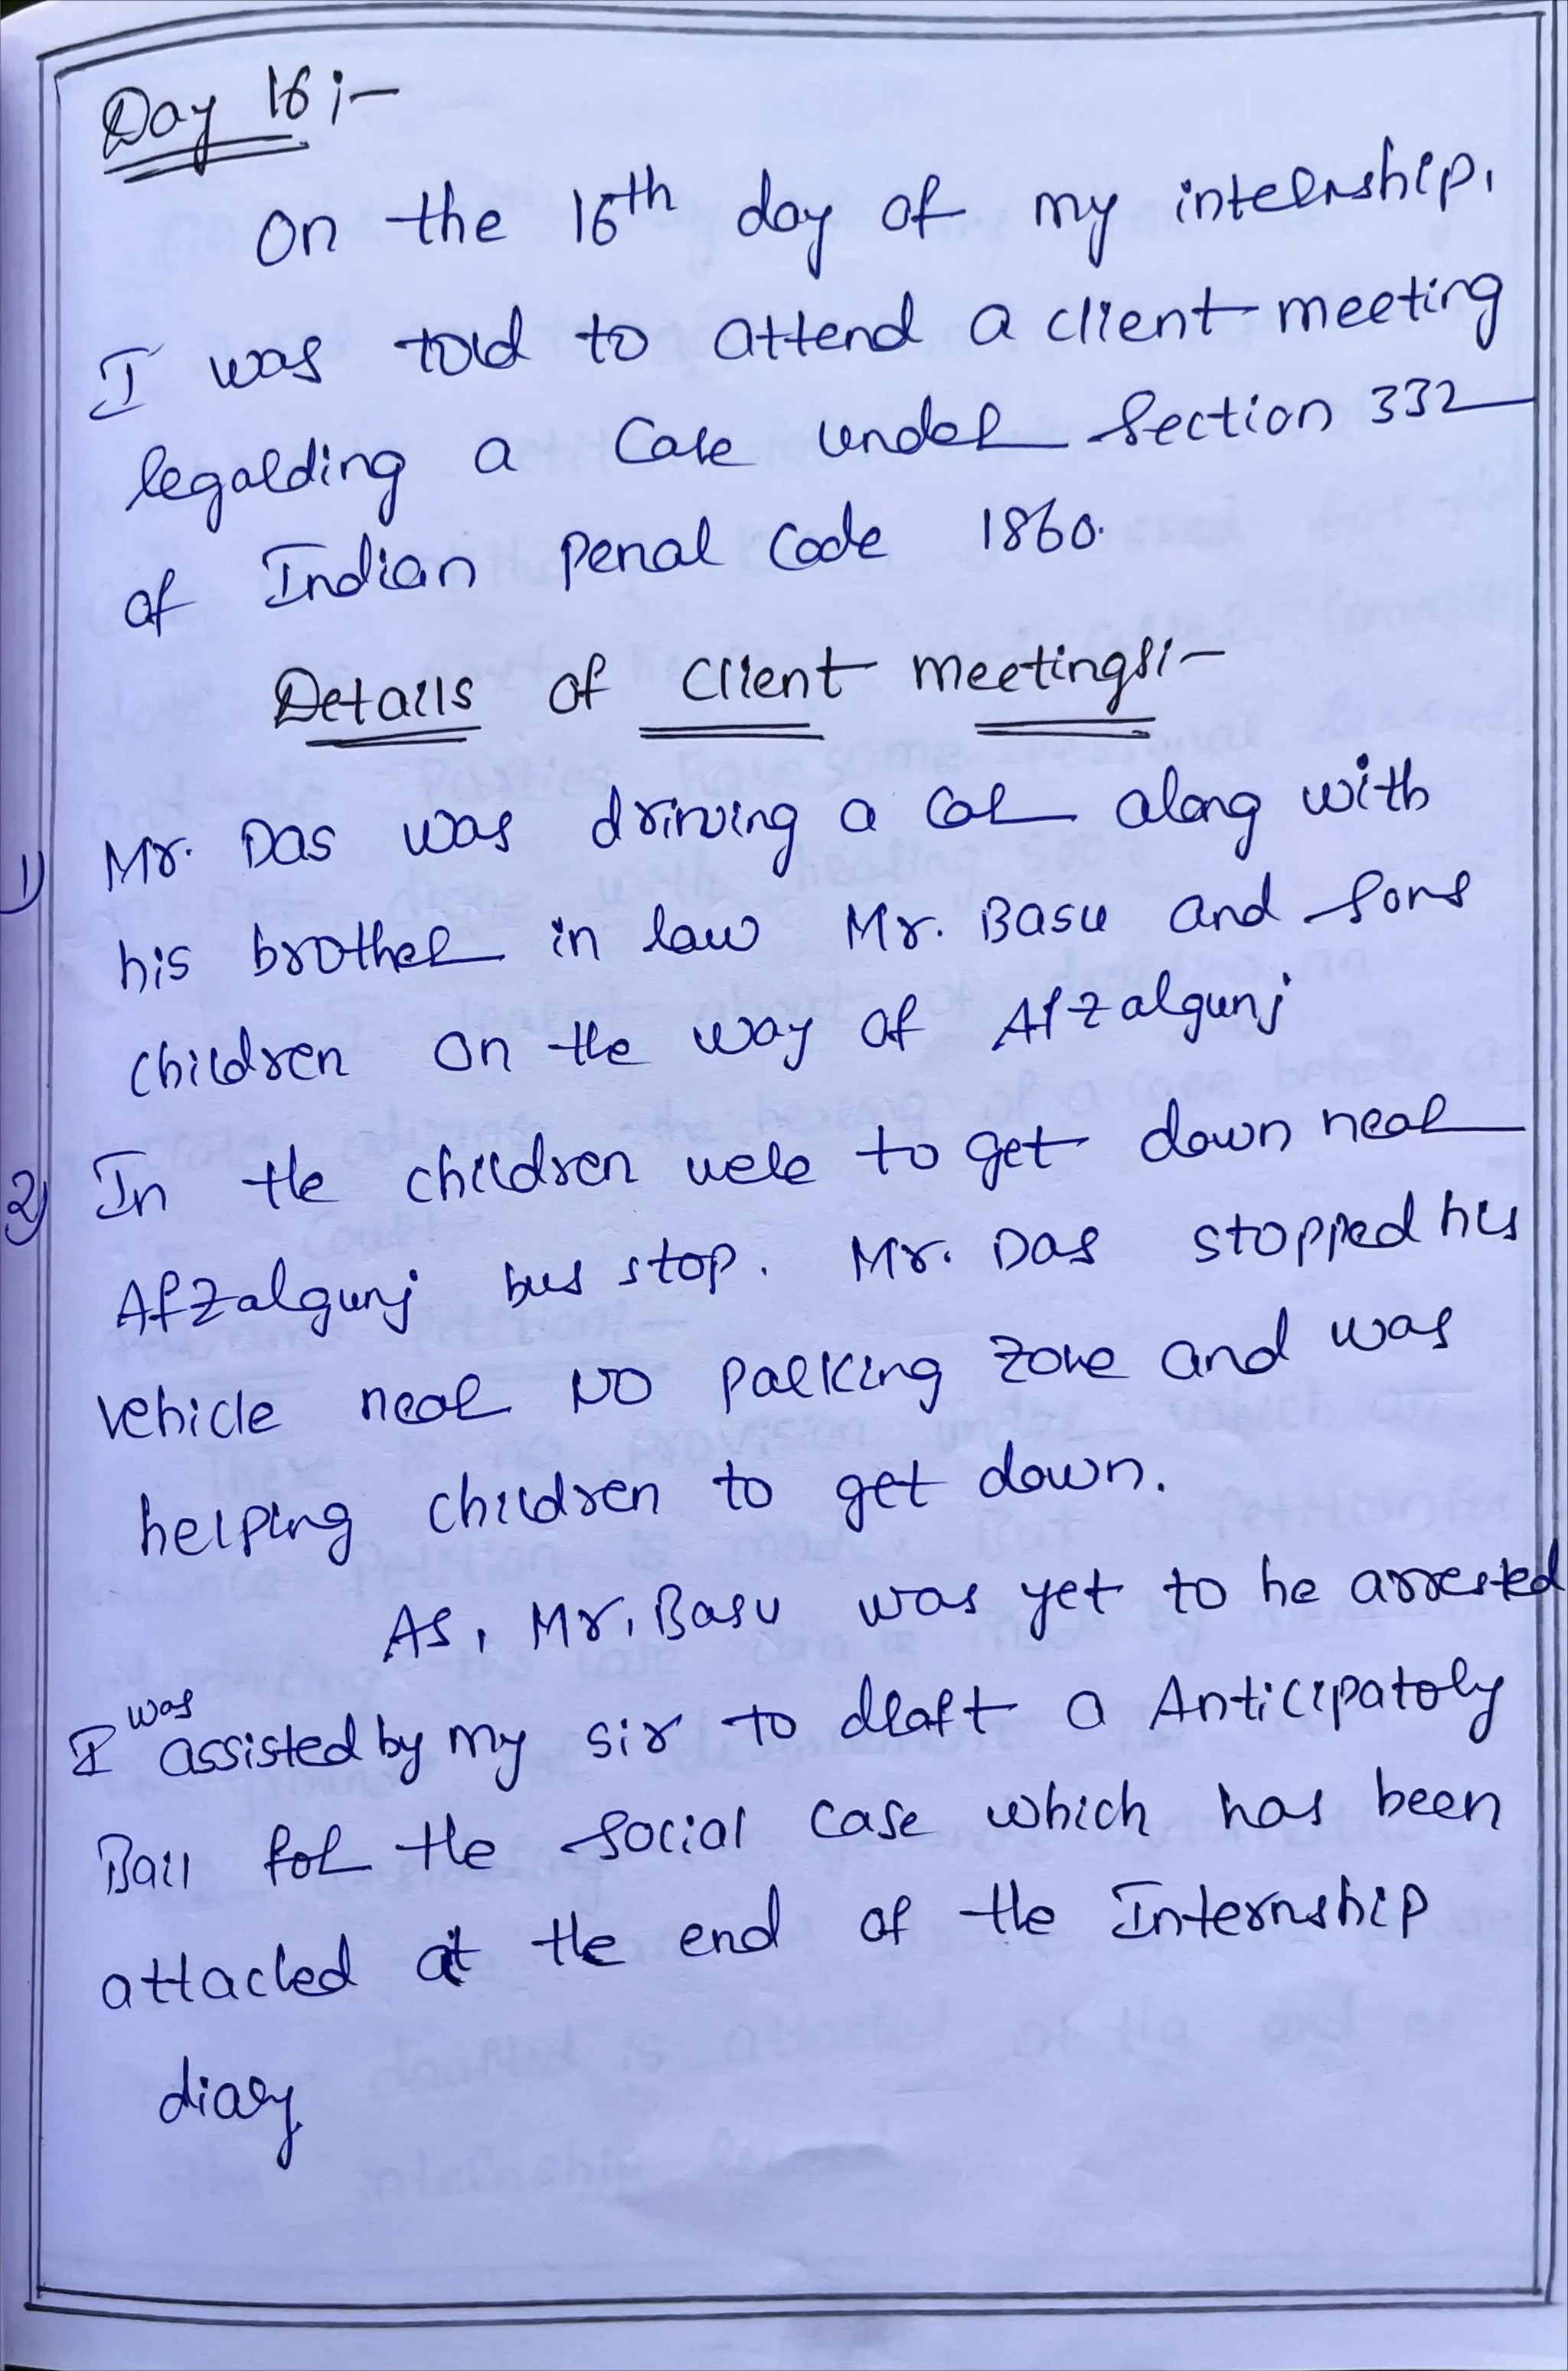 Day 16 :-
On the 16th day of my internship,
I was told to attend a client meeting
regarding a Case under Section 332
of Indian Penal Code 1860.
Details of Client Meetings:-
1) Mr. Das was driving a car along with
his brother in law Mr. Basu and Sons
children on the way of Afzalgunj
2) In the children were to get down near
Afzalgunj bus stop. Mr. Das stopped his
vehicle near NO Parking Zone and was
helping children to get down.
As, Mr. Basu was yet to be arrested
I was assisted by my sir to draft a Anticipatory
Bail for the Social case which has been
attached at the end of the Internship
diary